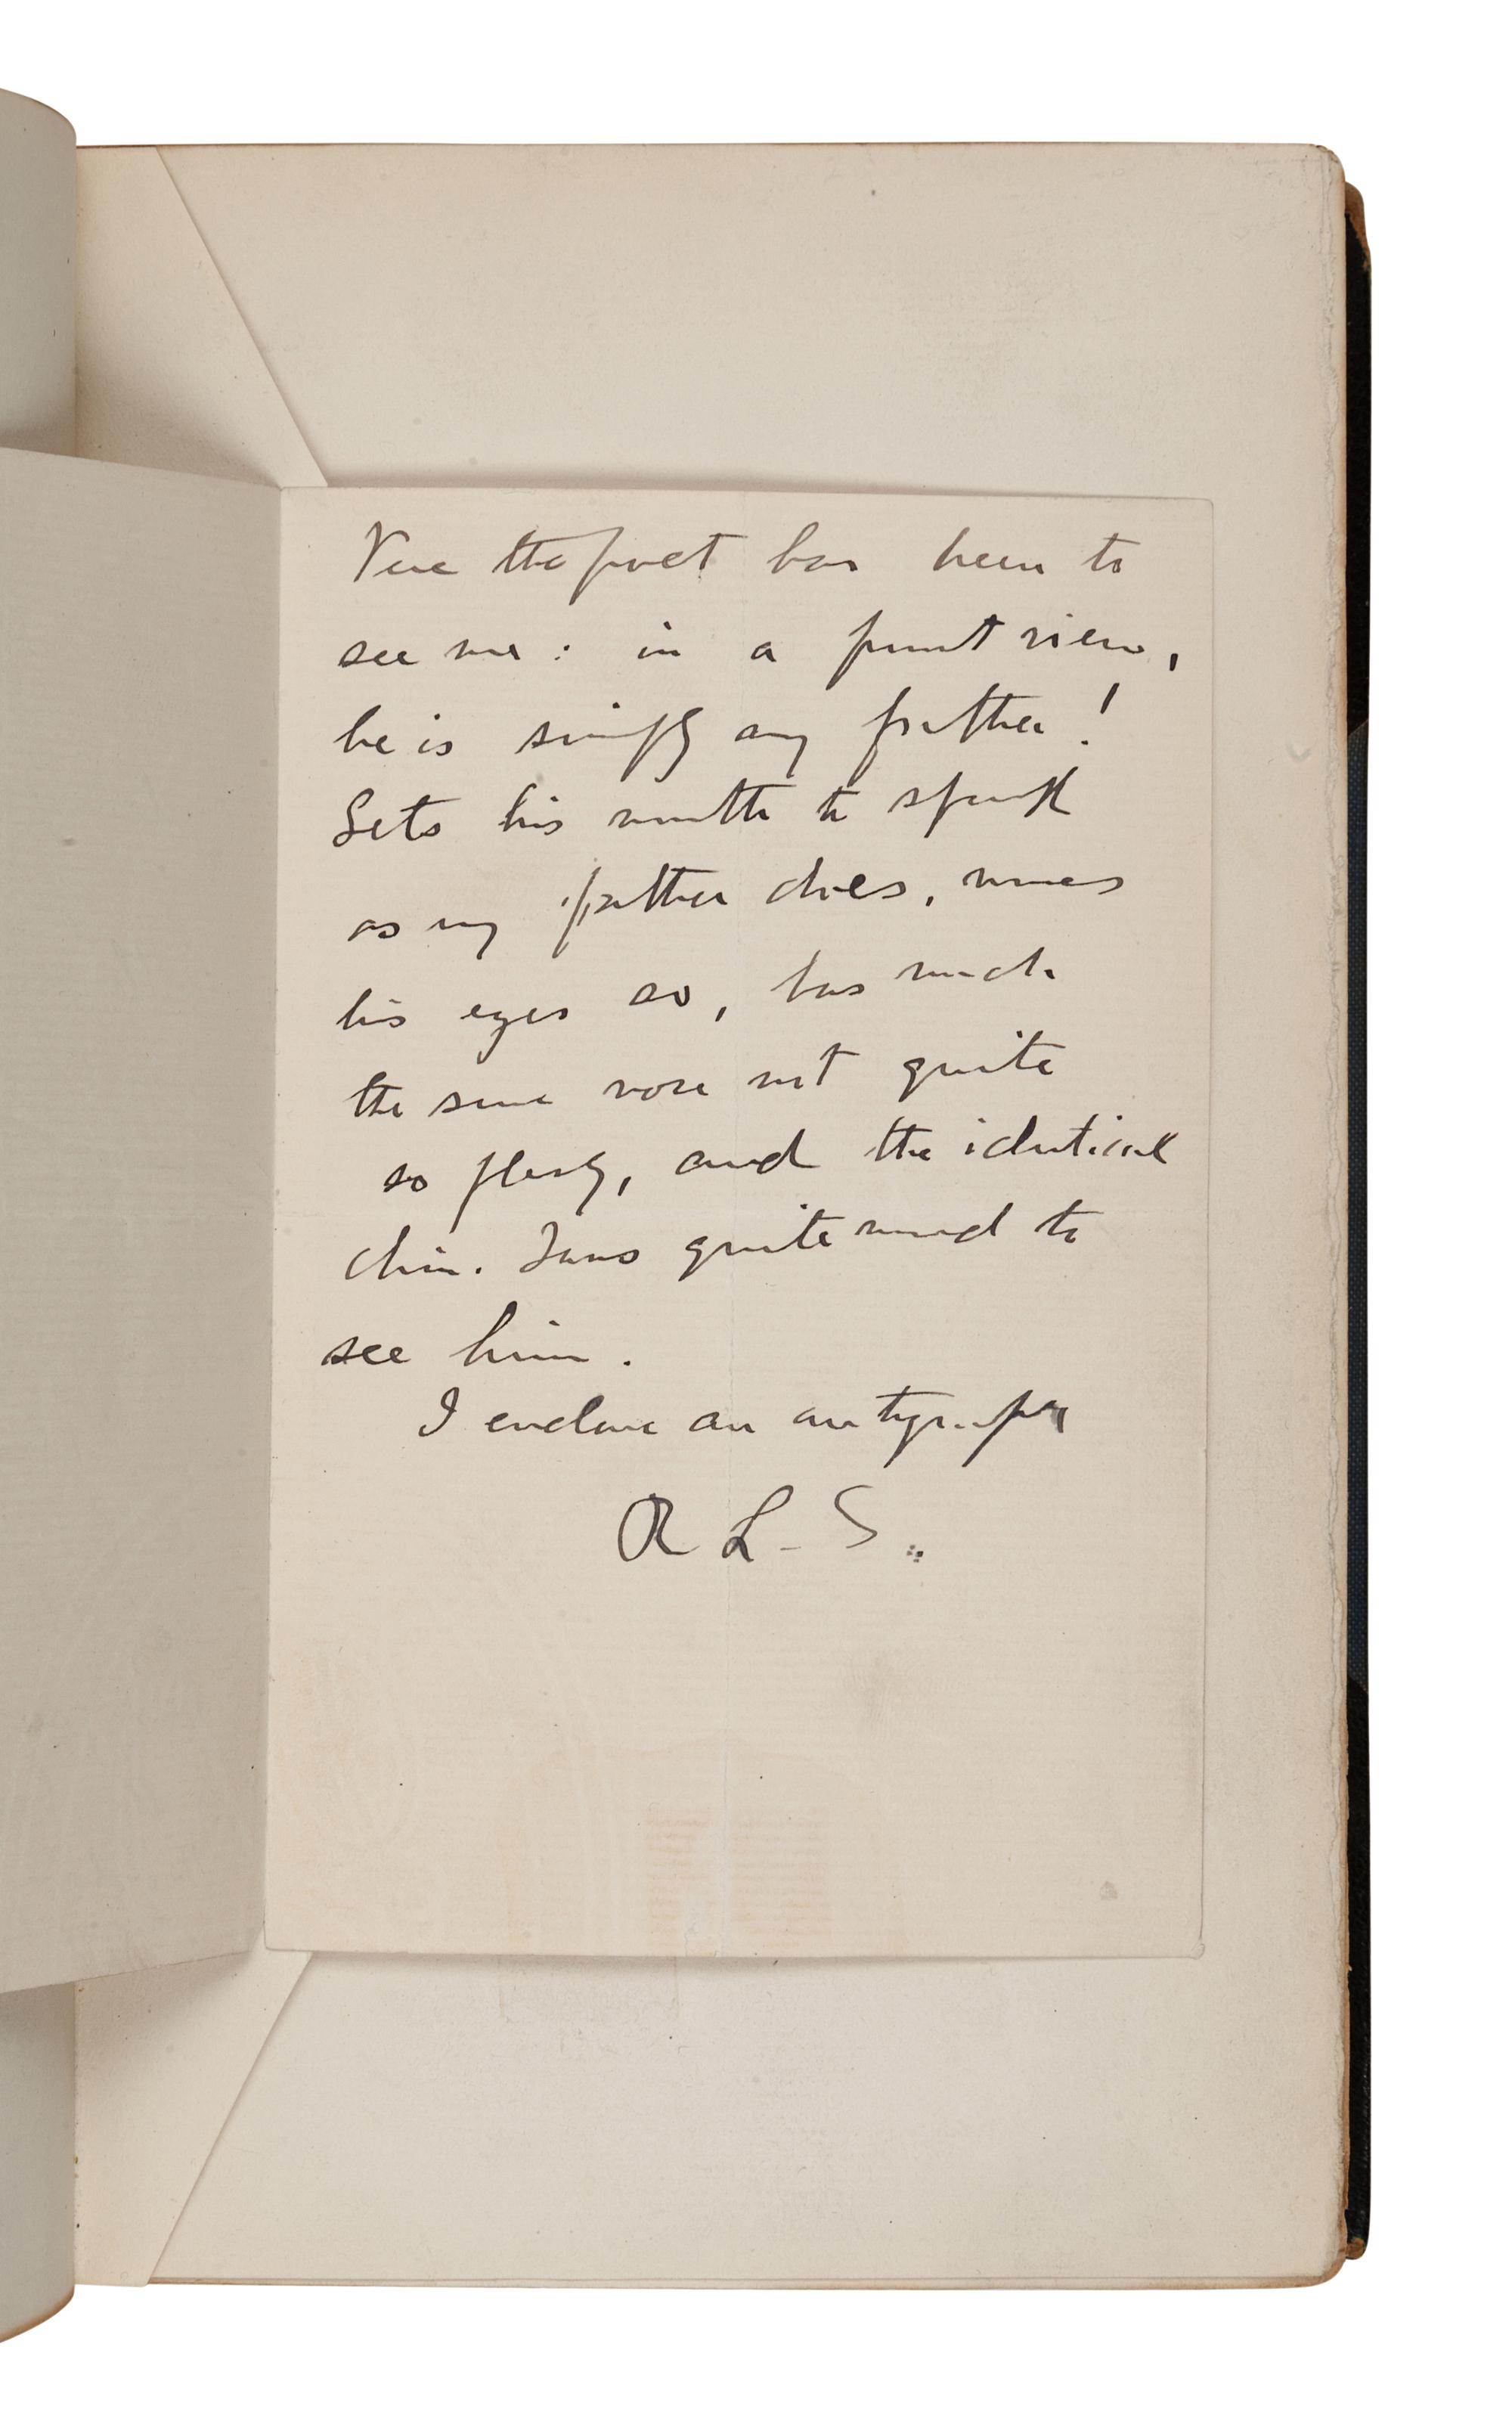 Vere the poet has been to
see me : in a front view,
he is simply my father !
Sets his mouth to speak
as my father does, moves
his eyes so, has much
the same nose not quite
so fleshy, and the identical
chin. I was quite moved to
see him.
I enclose an autograph
R L. S.